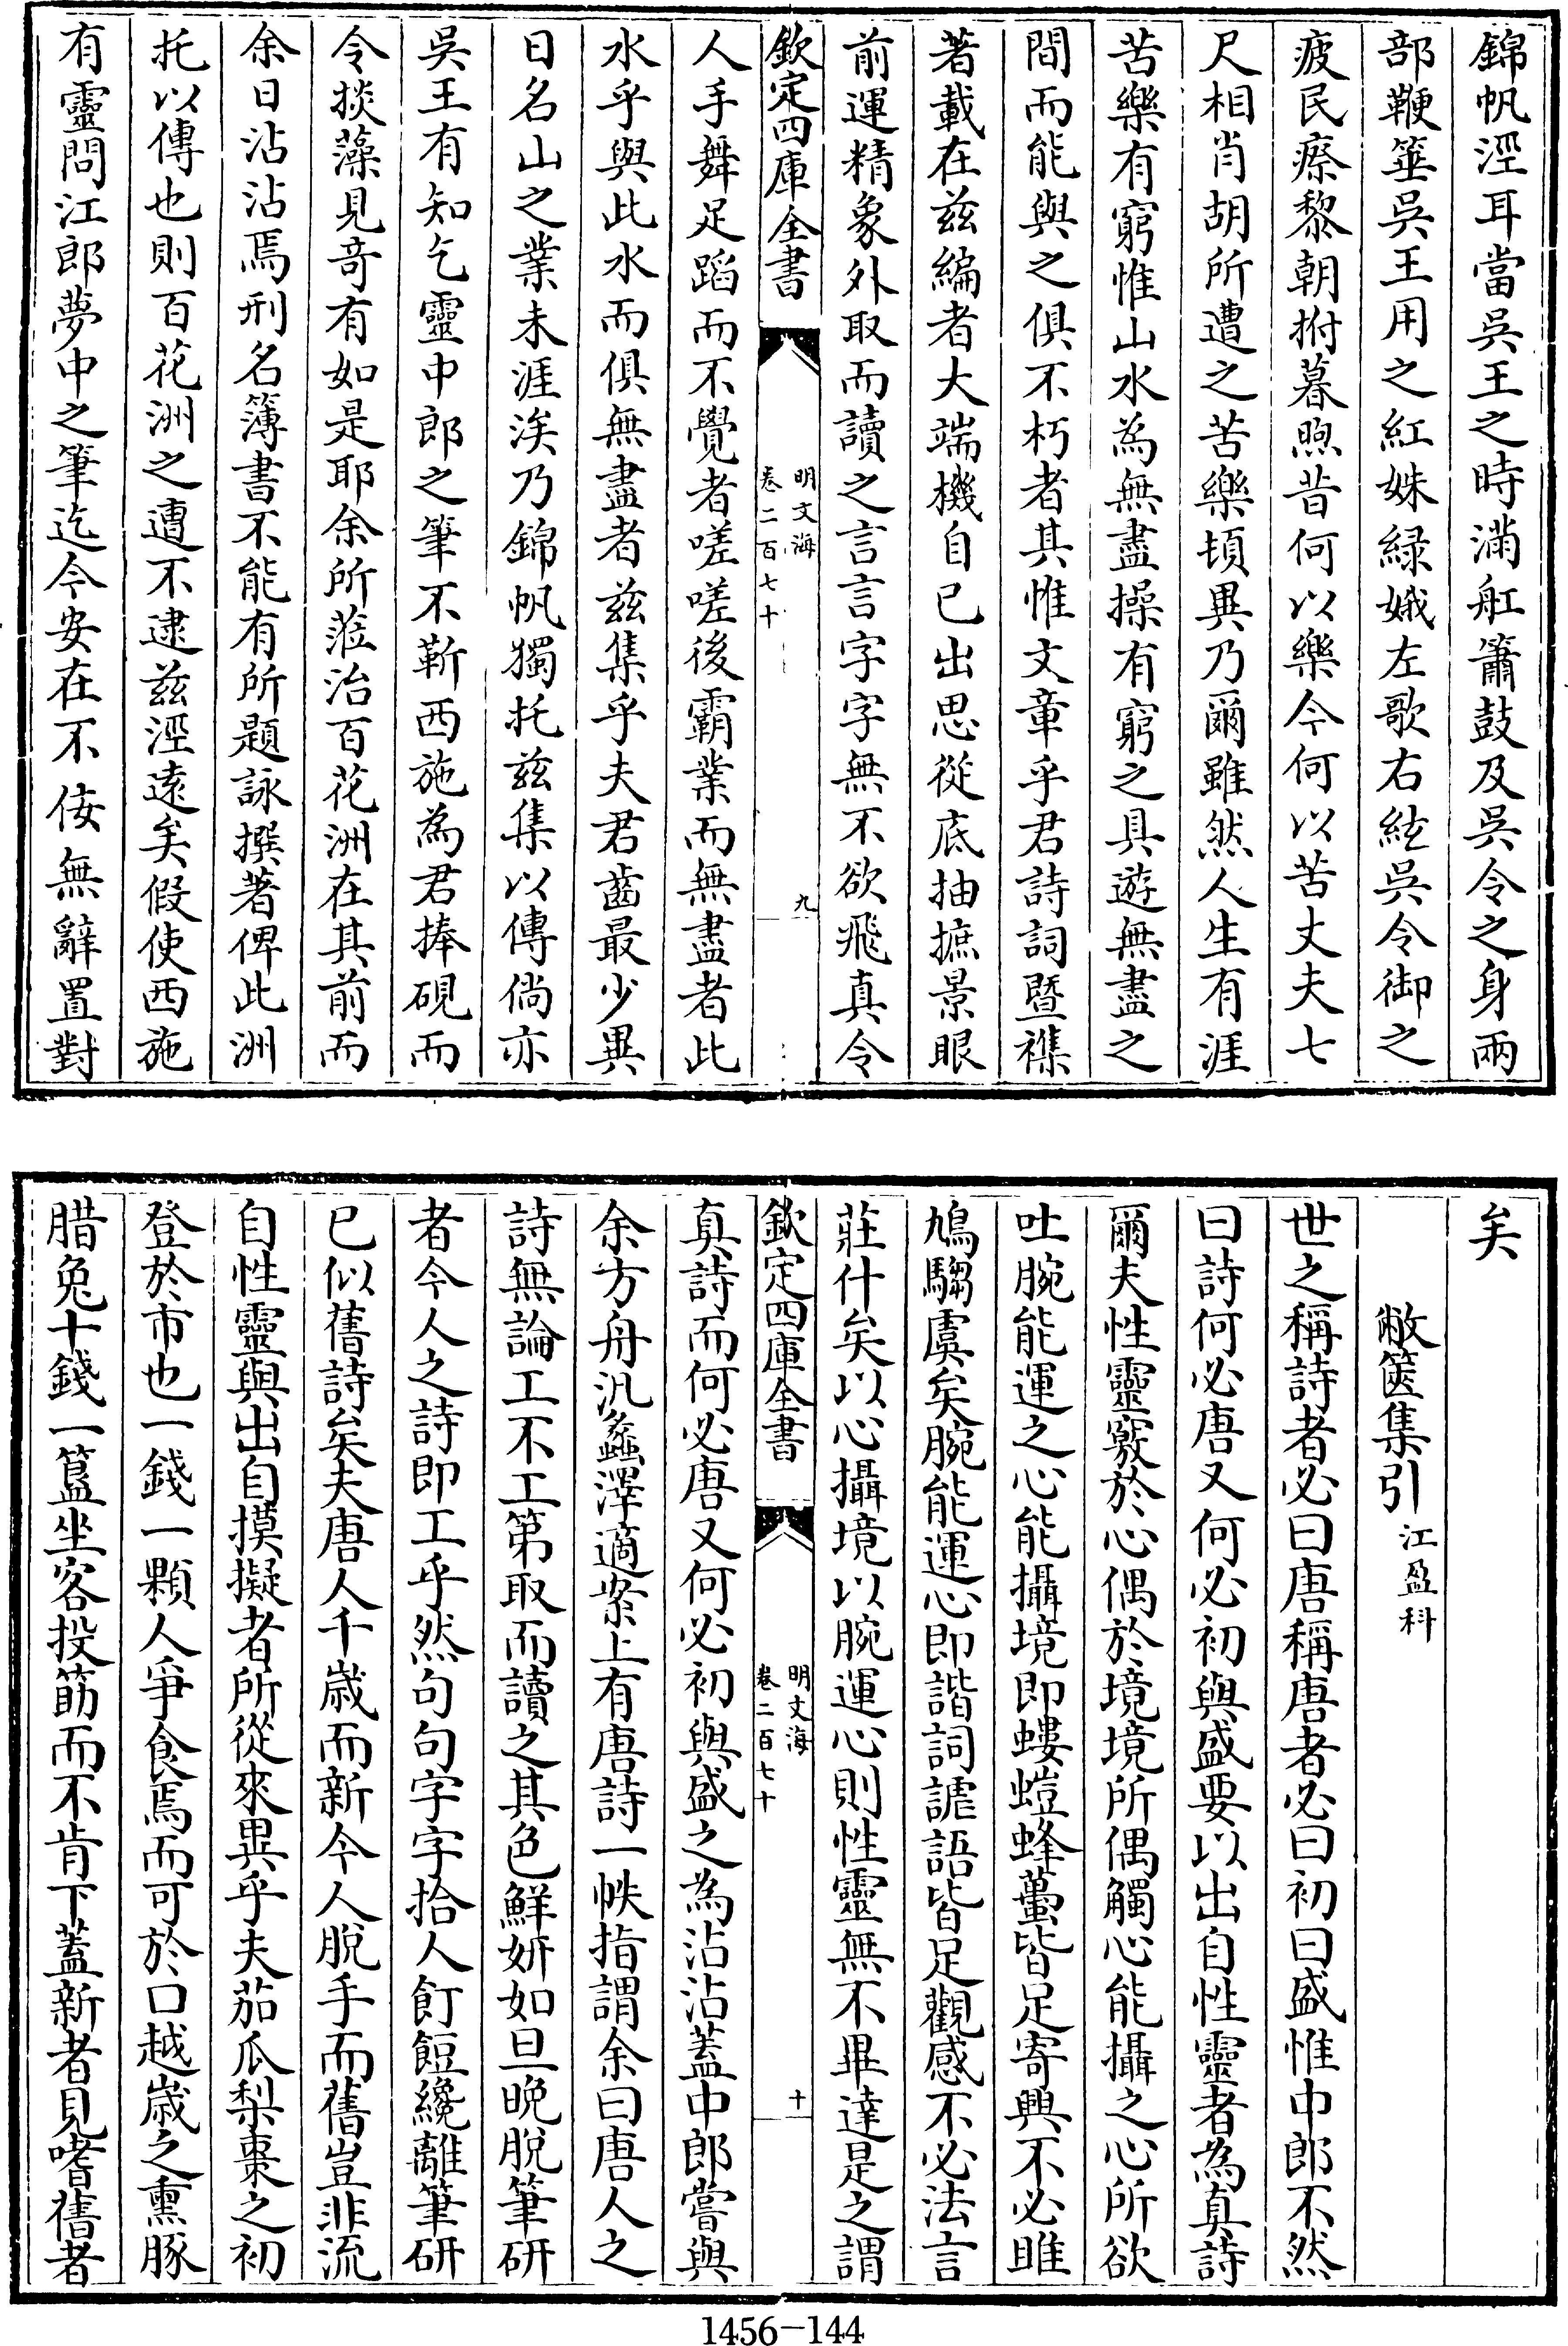 錦帆涇耳當吳王之時滿舡簫鼓及吳令之身兩
部鞭箠吳王用之紅姝緑娥左歌右絃吳令御之
疲民瘵黎朝拊暮煦昔何以樂今何以苦丈夫七
尺相肖胡所遭之苦樂頓異乃爾雖然人生有涯
苦樂有窮惟山水為無盡操有窮之具遊無盡之
間而能與之俱不朽者其惟文章乎君詩詞暨襍
著載在兹編者大端機自已出思從底抽摭景眼
前運精象外取而讀之言言字字無不欲飛真令
欽定四庫全書
明文海
卷二百七十
九
人手舞足蹈而不覺者嗟嗟後霸業而無盡者此
水乎與此水而俱無盡者兹集乎夫君齒最少異
日名山之業未涯涘乃錦帆獨托兹集以傳倘亦
吳王有知乞靈中郎之筆不靳西施為君捧硯而
令掞藻見竒有如是耶余所蒞治百花洲在其前而
余日沾沾焉刑名簿書不能有所題詠撰著俾此洲
托以傳也則百花洲之遭不逮兹涇遠矣假使西施
有靈問江郎夢中之筆迄今安在不佞無辭置對
矣
敝篋集引 江盈科
世之稱詩者必曰唐稱唐者必曰初曰盛惟中郎不然
曰詩何必唐又何必初與盛要以出自性靈者為真詩
爾夫性靈竅於心偶於境境所偶觸心能攝之心所欲
吐腕能運之心能攝境即螻螘蜂蠆皆足寄興不必雎
鳩騶虞矣腕能運心即諧詞謔語皆足觀感不必法言
莊什矣以心攝境以腕運心則性靈無不畢達是之謂
欽定四庫全書
明文海
卷二百七十
十
真詩而何必唐又何必初與盛之為沾沾蓋中郎嘗與
余方舟汎蠡澤適案上有唐詩一帙指謂余曰唐人之
詩無論工不工第取而讀之其色鮮妍如旦晚脫筆研
者今人之詩即工乎然句句字字拾人飣餖纔離筆研
已似舊詩矣夫唐人千歲而新今人脫手而舊豈非流
自性靈與出自摸擬者所從來異乎夫茄瓜梨棗之初
登於市也一錢一顆人爭食焉而可於口越歲之熏豚
腊兔十錢一簋坐客投筯而不肯下蓋新者見嗜舊者
1456-144